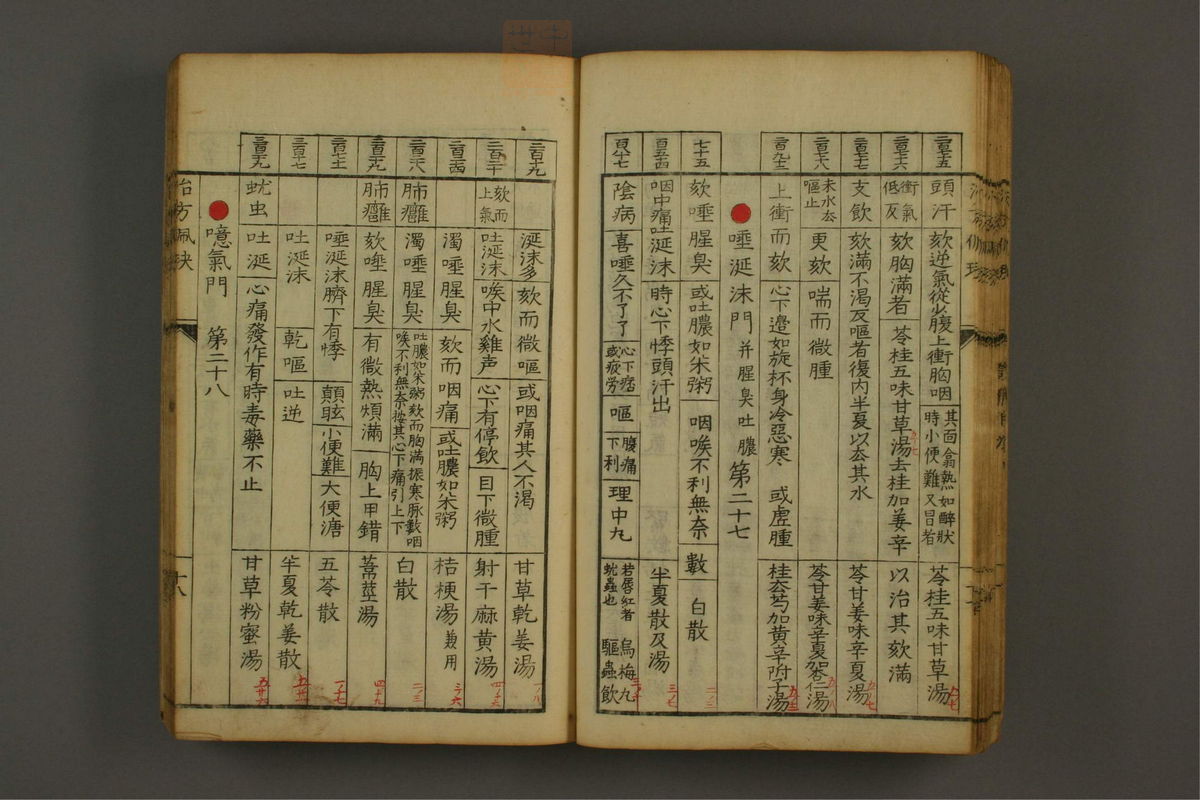 頭汗 欬逆氣從少腹上衝胸咽 其面翕熱如醉狀時小便難又冒者 苓桂五味甘草湯
衝氣低反 欬胸滿者 苓桂五味甘草湯去桂加姜辛 以治其欬滿
支飲 欬滿不渴反嘔者復内半夏以去其水 苓甘姜味辛夏湯
未水去嘔止 更欬 喘而微腫 苓甘姜味辛夏加杏仁湯
上衝而欬 心下邉如旋杯身冷惡寒 或虚腫 桂去芍加黄辛附子湯
唾涎沫門 并腥臭吐膿 第二十七
七十五 欬唾腥臭 或吐膿如米粥 咽喉不利無奈 數 白散
咽中痛吐涎沫 時心下悸頭汗出 半夏散及湯
陰病 喜唾久不了了 心下痞或疲労 嘔 腹痛下利 理中丸 若唇紅者蚘蟲也 烏梅丸 驅蟲飲
涎沫多 欬而微嘔 或咽痛其人不渴 甘草乾姜湯
欬而上氣 吐涎沫 喉中水雞声 心下有停飲 目下微腫 射干麻黄湯
濁唾腥臭 欬而咽痛 或吐膿如米粥 桔梗湯 兼用
肺癰 濁唾腥臭 吐膿如米粥欬而胸滿振寒脉數咽喉不利無奈按其心下痛引上下 白散
肺癰 欬唾腥臭 有微熱煩滿 胸上甲錯 葦莖湯
唾涎沫臍下有悸 顛眩 小便難 大便溏 五苓散
吐涎沫 乾嘔 吐逆 半夏乾姜散
蚘虫 吐涎 心痛發作有時毒藥不止 甘草粉蜜湯
噫氣門 第二十八
治方佩玦 十八